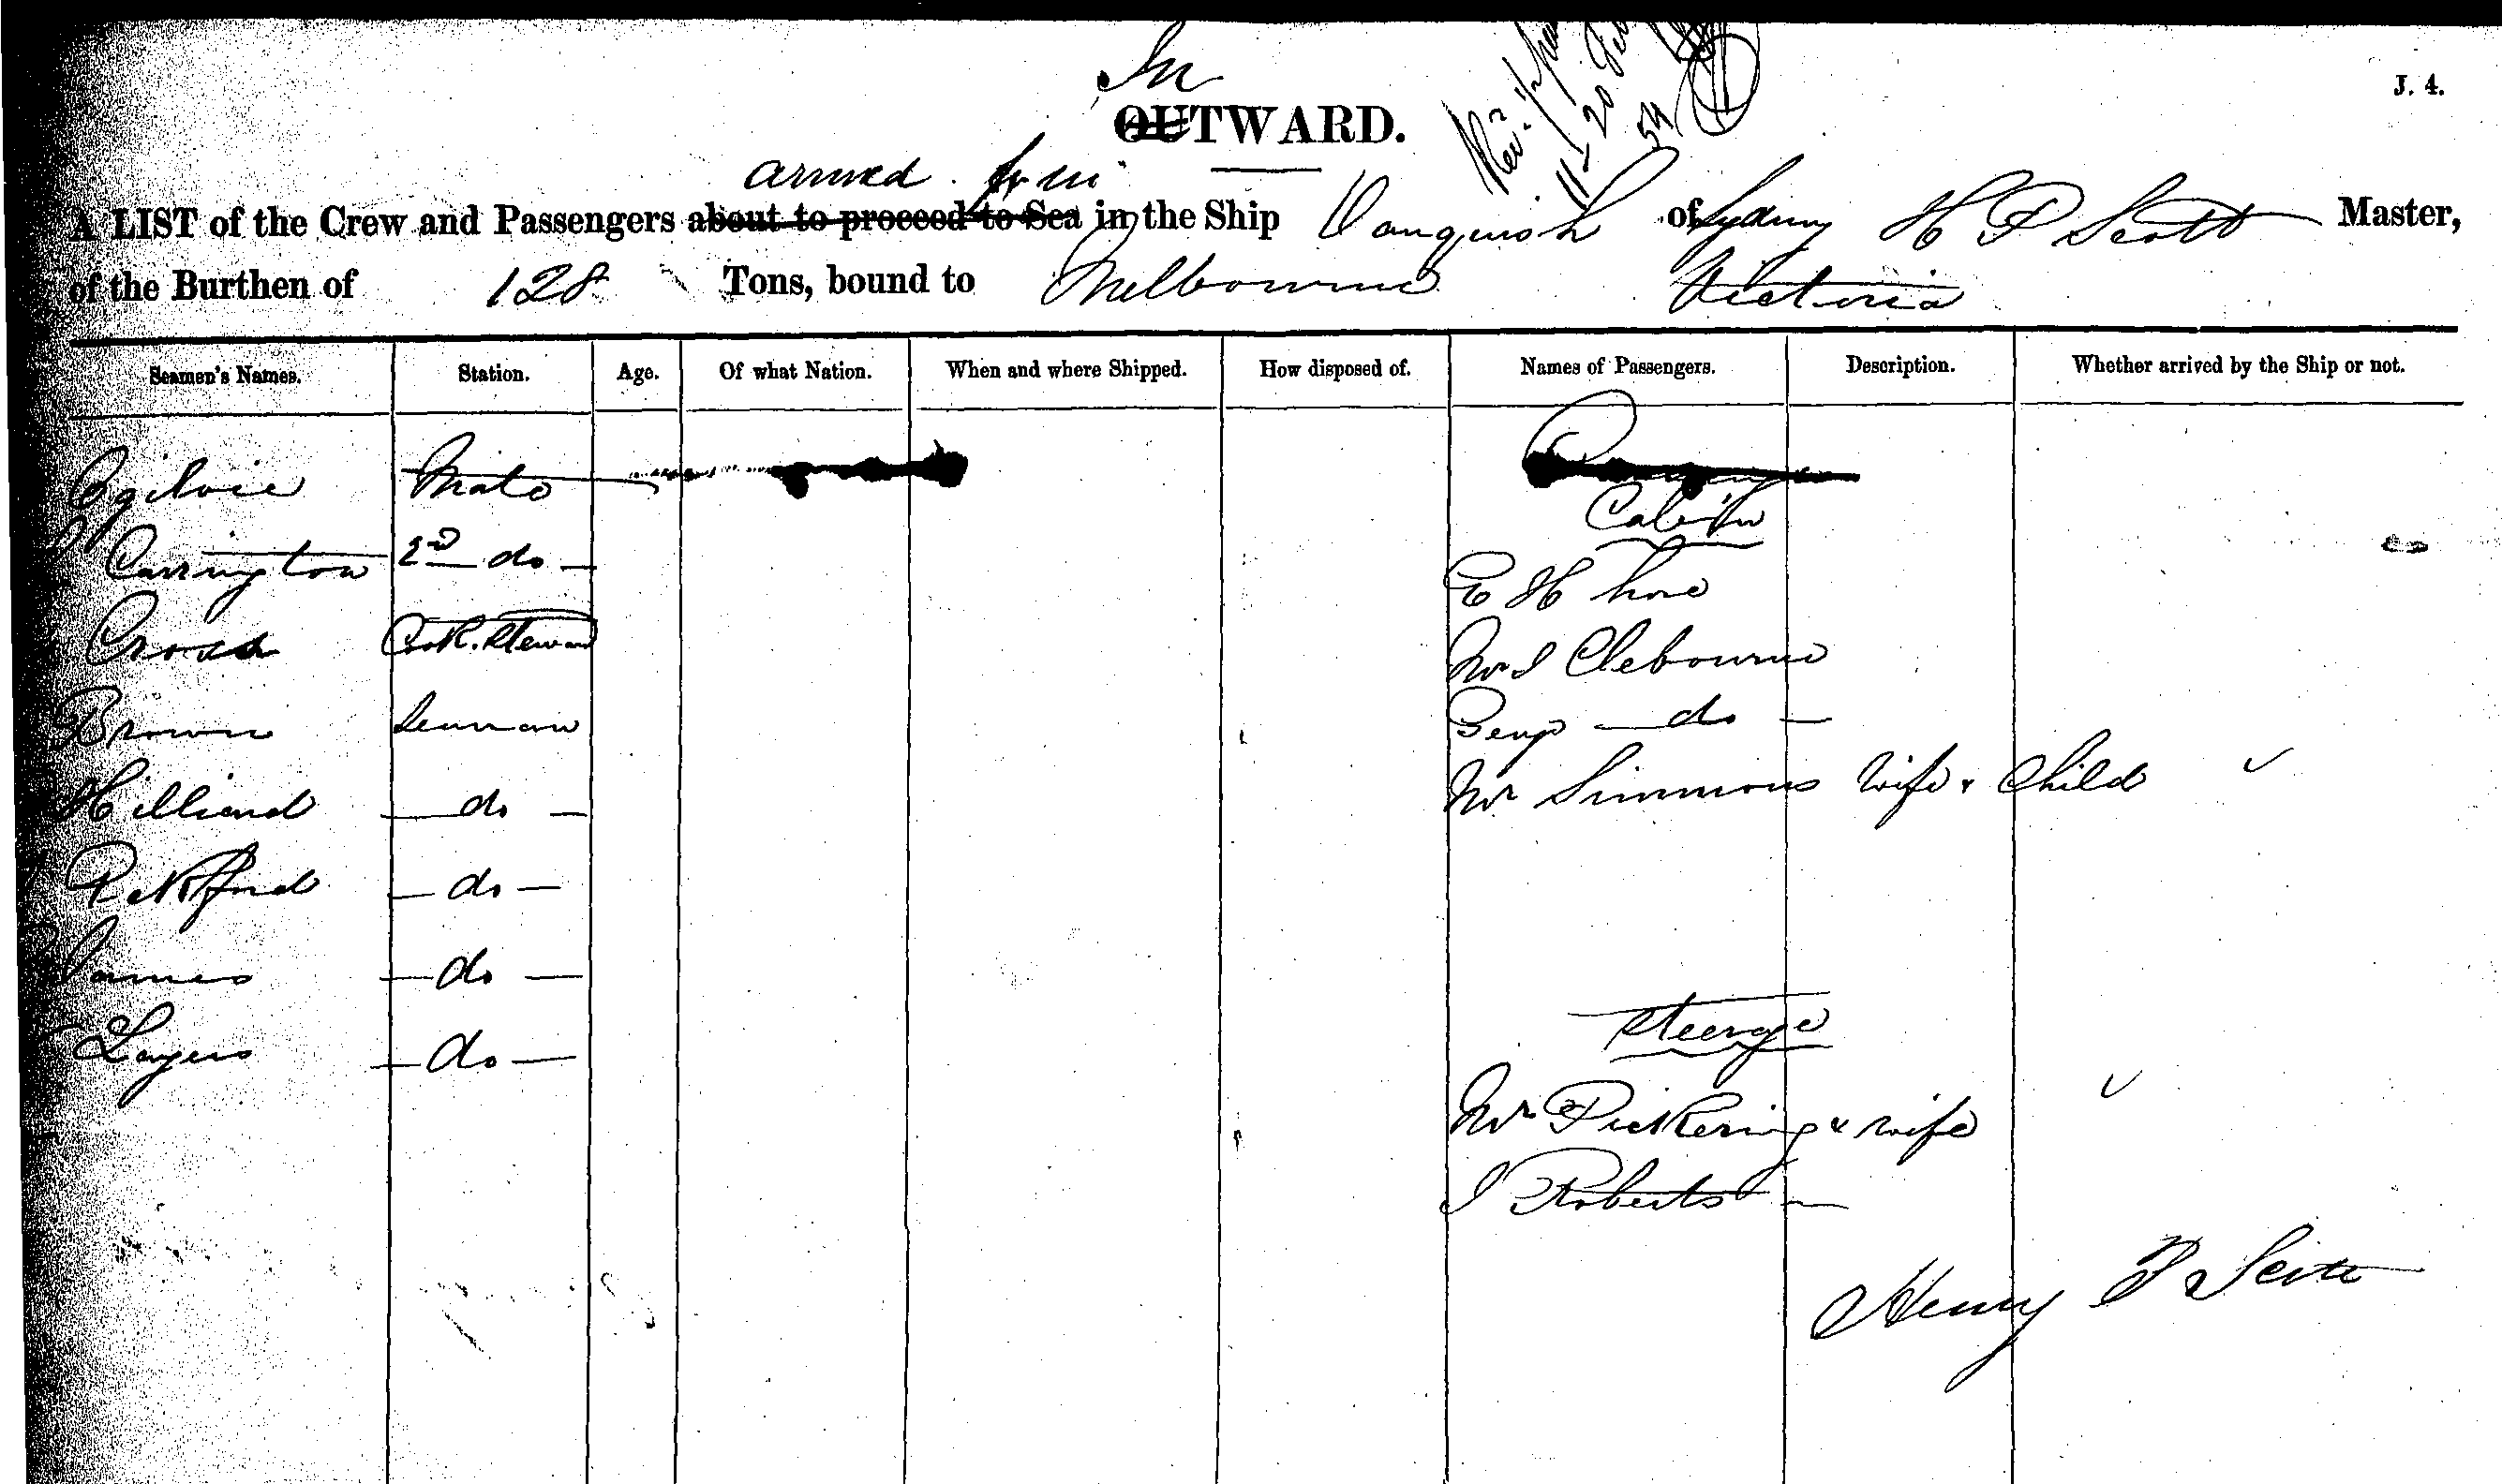 In
J. 4.
OUTWARD.
11 20
54
arrived from
A LIST of the Crew and Passengers about to proceed to Sea in the Ship Vanquish of Sydney H P Scott Master,
of the Burthen of 128 Tons, bound to Melbourne Victoria
Seamen's Names. Station. Age. Of what Nation. When and where Shipped. How disposed of. Names of Passengers. Description. Whether arrived by the Ship or not.
Ogilvie Mate
Cabin
Carrington 2nd do
E H
Cross Cook. Steward
Mr J Clebourne
Brown Seaman
Geo do
Hilliard do
Mr Simmons Wife & Child
Peckford do
James do
Steerage
Layers do
Mr Pickering & wife
J Roberts
Henry P Scott